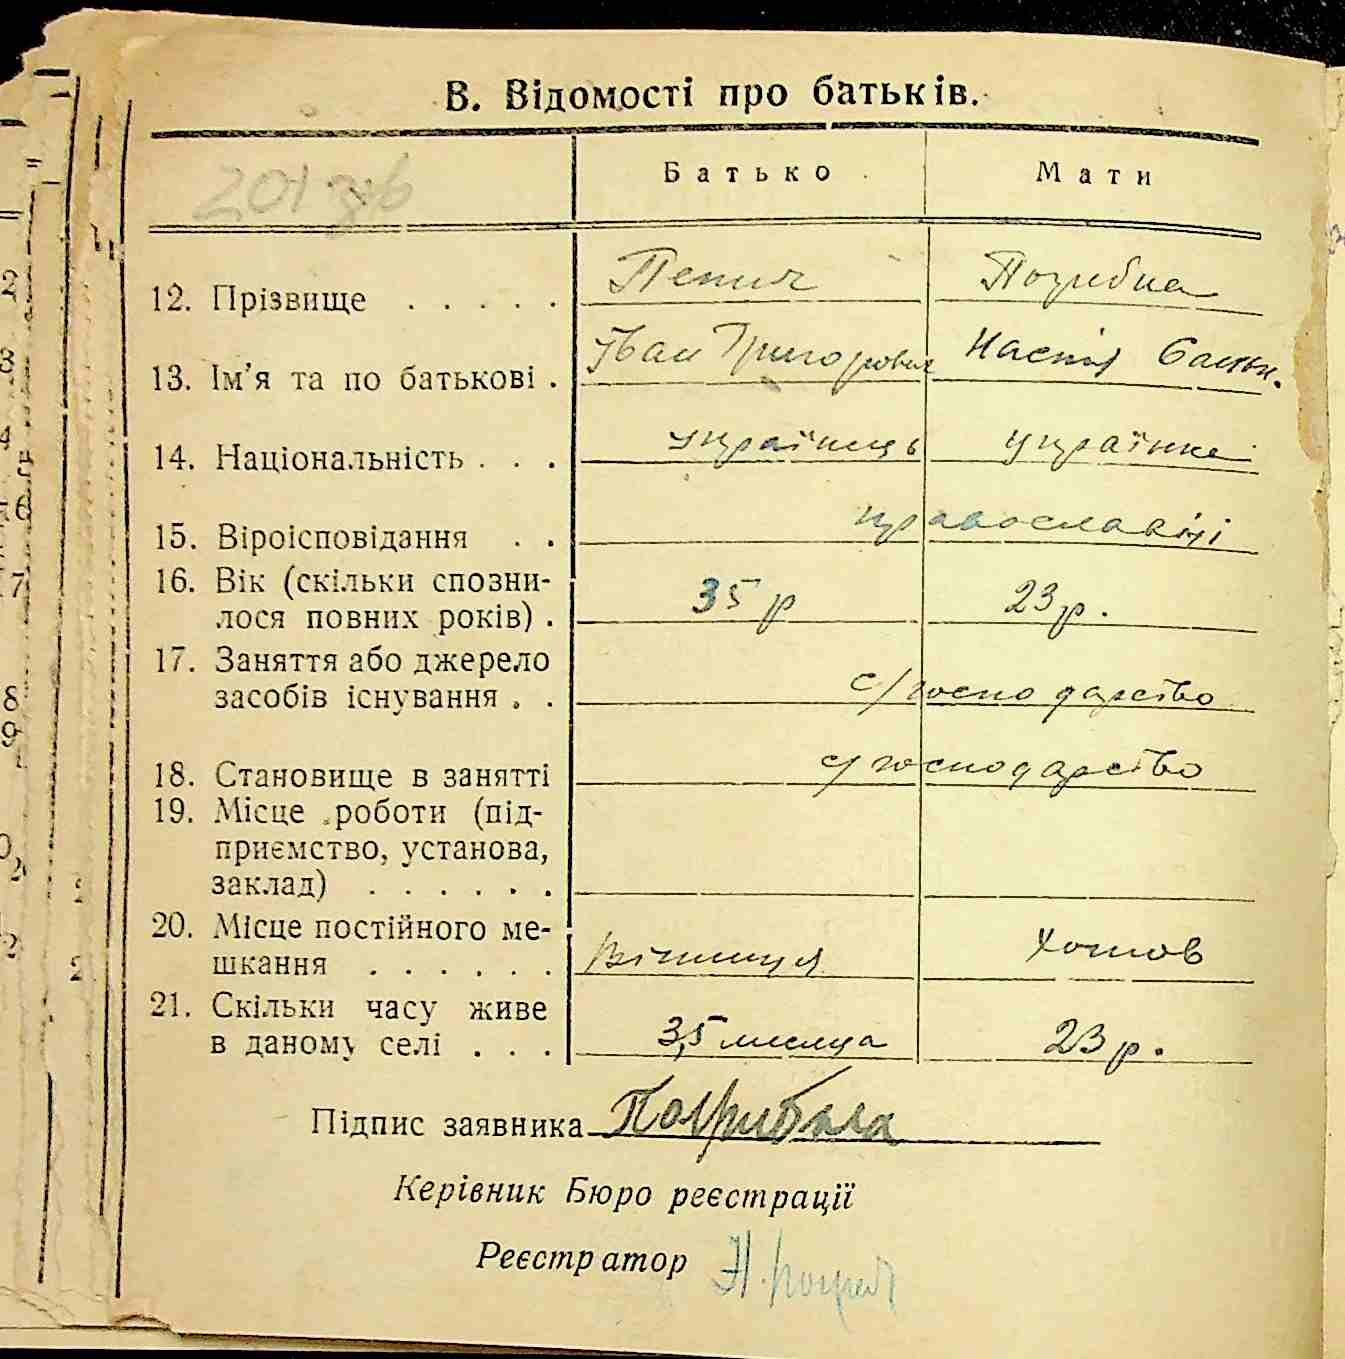 В. Відомості про батьків.
201 зв
Батько Мати
12. Прізвище . . . . . Пепич Погрибна
13. Ім'я та по батькові . Іван Григорович Настя
14. Національність . . . українець українка
15. Віроісповідання . . православні
16. Вік (скільки спозни-
лося повних років) . 35 р 23 р.
17. Заняття або джерело
засобів існування . . с/господарство
18. Становище в занятті с/господарство
19. Місце роботи (під-
приємство, установа,
заклад) . . . . . .
20. Місце постійного ме-
шкання . . . . . . Вінниця Хотов
21. Скільки часу живе
в даному селі . . . 3,5 месяца 23 р.
Підпис заявника Погрибная
Керівник Бюро реєстрації
Реєстратор